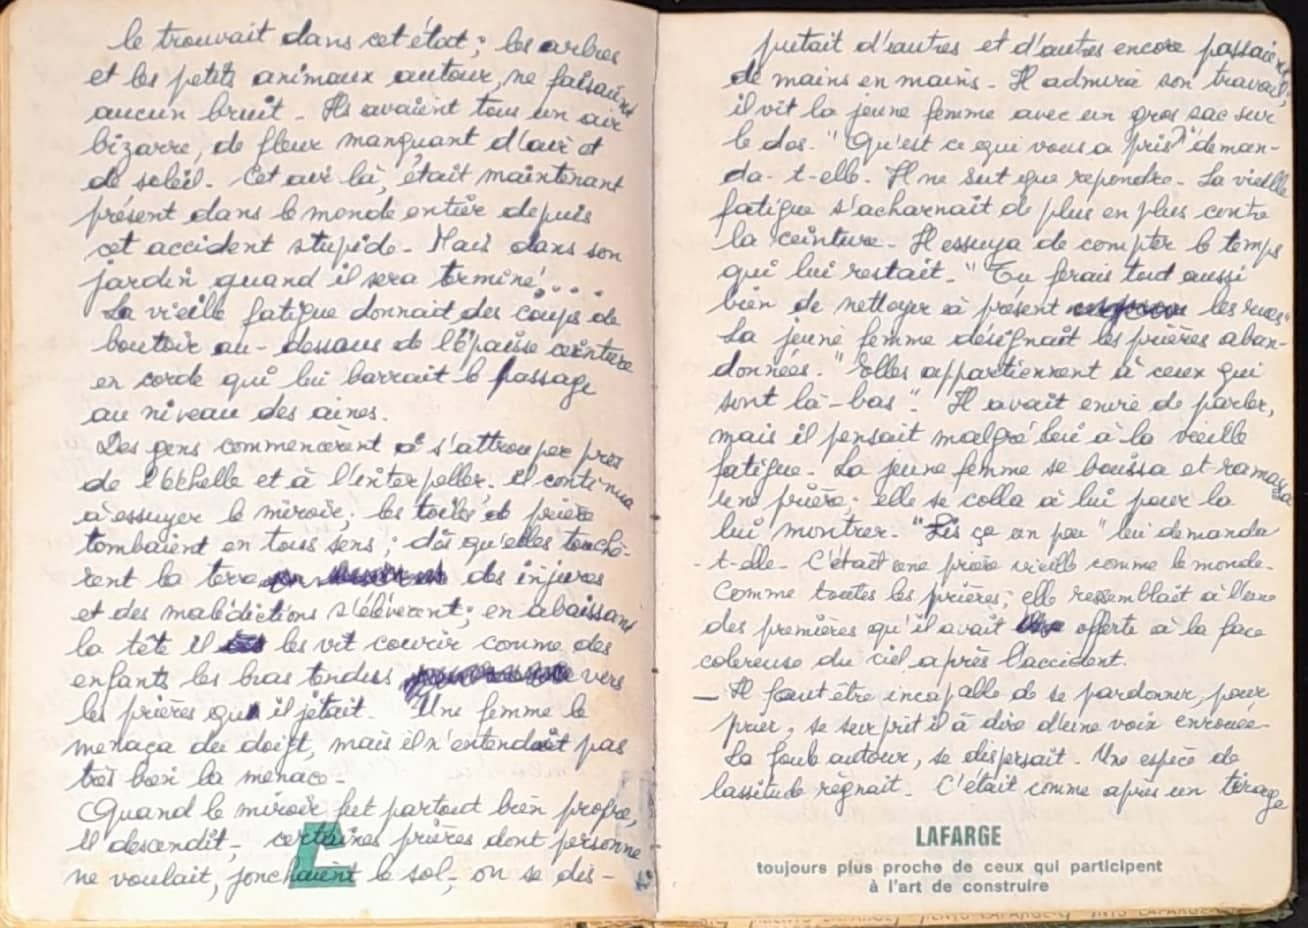 le trouvait dans cet état ; les arbres
et les petits animaux autour, ne faisaient
aucun bruit - Ils avaient tous un air
bizarre, de fleur manquant d'air et
de soleil. Cet air là, était maintenant
présent dans le monde entier depuis
cet accident stupide - Mais dans son
jardin quand il sera terminé....
La vieille fatigue donnait des coups de
boutoir au-dessous de l'épaisse ceinture
en corde qui lui barrait le passage
au niveau des aines.
Des gens commencèrent à s'attrouper près
de l'échelle et à l'interpeller. il continua
à essuyer le miroir ; les toiles et prière
tombaient en tous sens ; dès qu'elles touchè-
rent la terre des injures
et des malédictions s'élevèrent ; en abaissant
la tête il les vit courir comme des
enfants les bras tendus vers
les prières qu' il jetait. Une femme le
menaça du doigt, mais il n'entendait pas
très bien la menace -
Quand le miroir fut partout bien propre,
il descendit - certaines prières dont personne
ne voulait, jonchaient le sol -, on se dis-
putait d'autres et d'autres encore passaient
de mains en mains - Il admira son travail,
il vit la jeune femme avec un gros sac sur
le dos. "Qu'est ce qui vous a pris ?" deman-
da-t-elle. Il ne sut que répondre - La vieille
fatigue s'acharnait de plus en plus contre
la ceinture - Il essaya de compter le temps
qui lui restait - "Tu ferais tout aussi
bien de nettoyer à présent les rues"
La jeune femme désignait les prières aban-
données. "elles appartiennent à ceux qui
sont là-bas". Il avait envie de parler,
mais il pensait malgré lui à la vieille
fatigue - La jeune femme se baissa et ramassa
une prière ; elle se colla à lui pour la
lui montrer - "Lis ça un peu" lui demanda
-t-elle - C'était une prière vieille comme le monde -
Comme toutes les prières ; elle ressemblait à l'une
des premières qu'il avait offerte à la face
colereuse du ciel après l'accident.
— Il faut être incapable de se pardonner, pour
prier, se surprit il à dire d'une voix enrouée -
La foule autour, se dispersait. Une espèce de
lassitude règnait. C'était comme après un tirage
LAFARGE
toujours plus proche de ceux qui participent
à l'art de construire